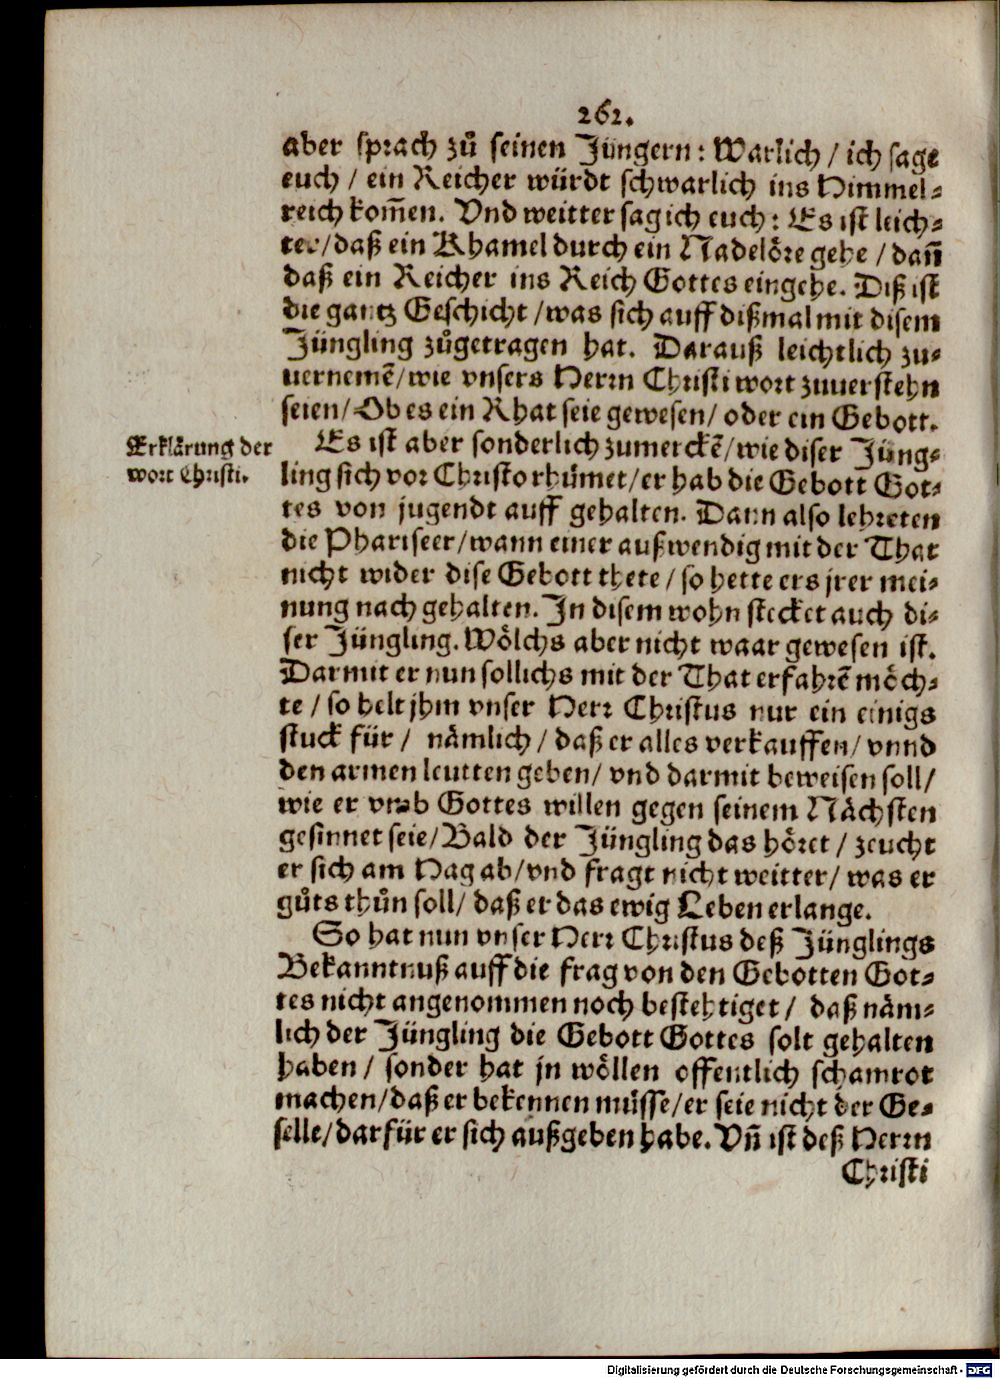 262.
aber sprach zů seinen Jüngern: Warlich / ich sage
euch / ein Reicher würdt schwarlich ins Himmel-
reich kom̃en. Vnd weitter sag ich euch: Es ist leich-
ter / daß ein Khamel durch ein Nadelöre gehe / dañ
daß ein Reicher ins Reich Gottes eingehe. Diß ist
die gantz Geschicht / was sich auff dißmal mit disem
Jüngling zůgetragen hat. Darauß leichtlich zu-
uernemẽ / wie vnsers Herrn Christi wort zuuerstehn
seien / Ob es ein Rhat seie gewesen / oder ein Gebott.
Erklärung der
wort Christi.
Es ist aber sonderlich zumerckẽ / wie diser Jüng-
ling sich vor Christo rhümet / er hab die Gebott Got-
tes von jugendt auff gehalten. Dann also lehreten
die Phariseer / wann einer außwendig mit der That
nicht wider dise Gebott thete / so hette ers jrer mei-
nung nach gehalten. In disem wohn stecket auch di-
ser Jüngling. Wölchs aber nicht waar gewesen ist.
Darmit er nun sollichs mit der That erfahrẽ möch-
te / so helt jhm vnser Herr Christus nur ein einigs
stuck für / nämlich / daß er alles verkauffen / vnnd
den armen leutten geben / vnd darmit beweisen soll /
wie er vmb Gottes willen gegen seinem Nächsten
gesinnet seie / Bald der Jüngling das höret / zeucht
er sich am Hag ab / vnd fragt nicht weitter / was er
gůts thůn soll / daß er das ewig Leben erlange.
So hat nun vnser Herr Christus deß Jünglings
Bekanntnuß auff die frag von den Gebotten Got-
tes nicht angenommen noch bestehtiget / daß näm-
lich der Jüngling die Gebott Gottes solt gehalten
haben / sonder hat jn wöllen offentlich schamrot
machen / daß er bekennen müsse / er seie nicht der Ge-
selle / darfür er sich außgeben habe. Vñ ist deß Herrn
Christi
Digitalisierung gefördert durch die Deutsche Forschungsgemeinschaft - DFG